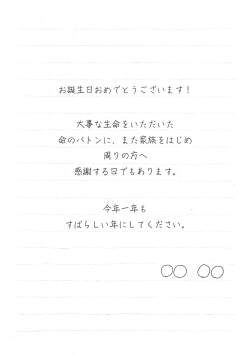 お誕生日おめでとうございます！
大事な生命をいただいた
命のバトンに、また家族をはじめ
周りの方へ
感謝する日でもあります。
今年一年も
すばらしい年にしてください。
○○ ○○